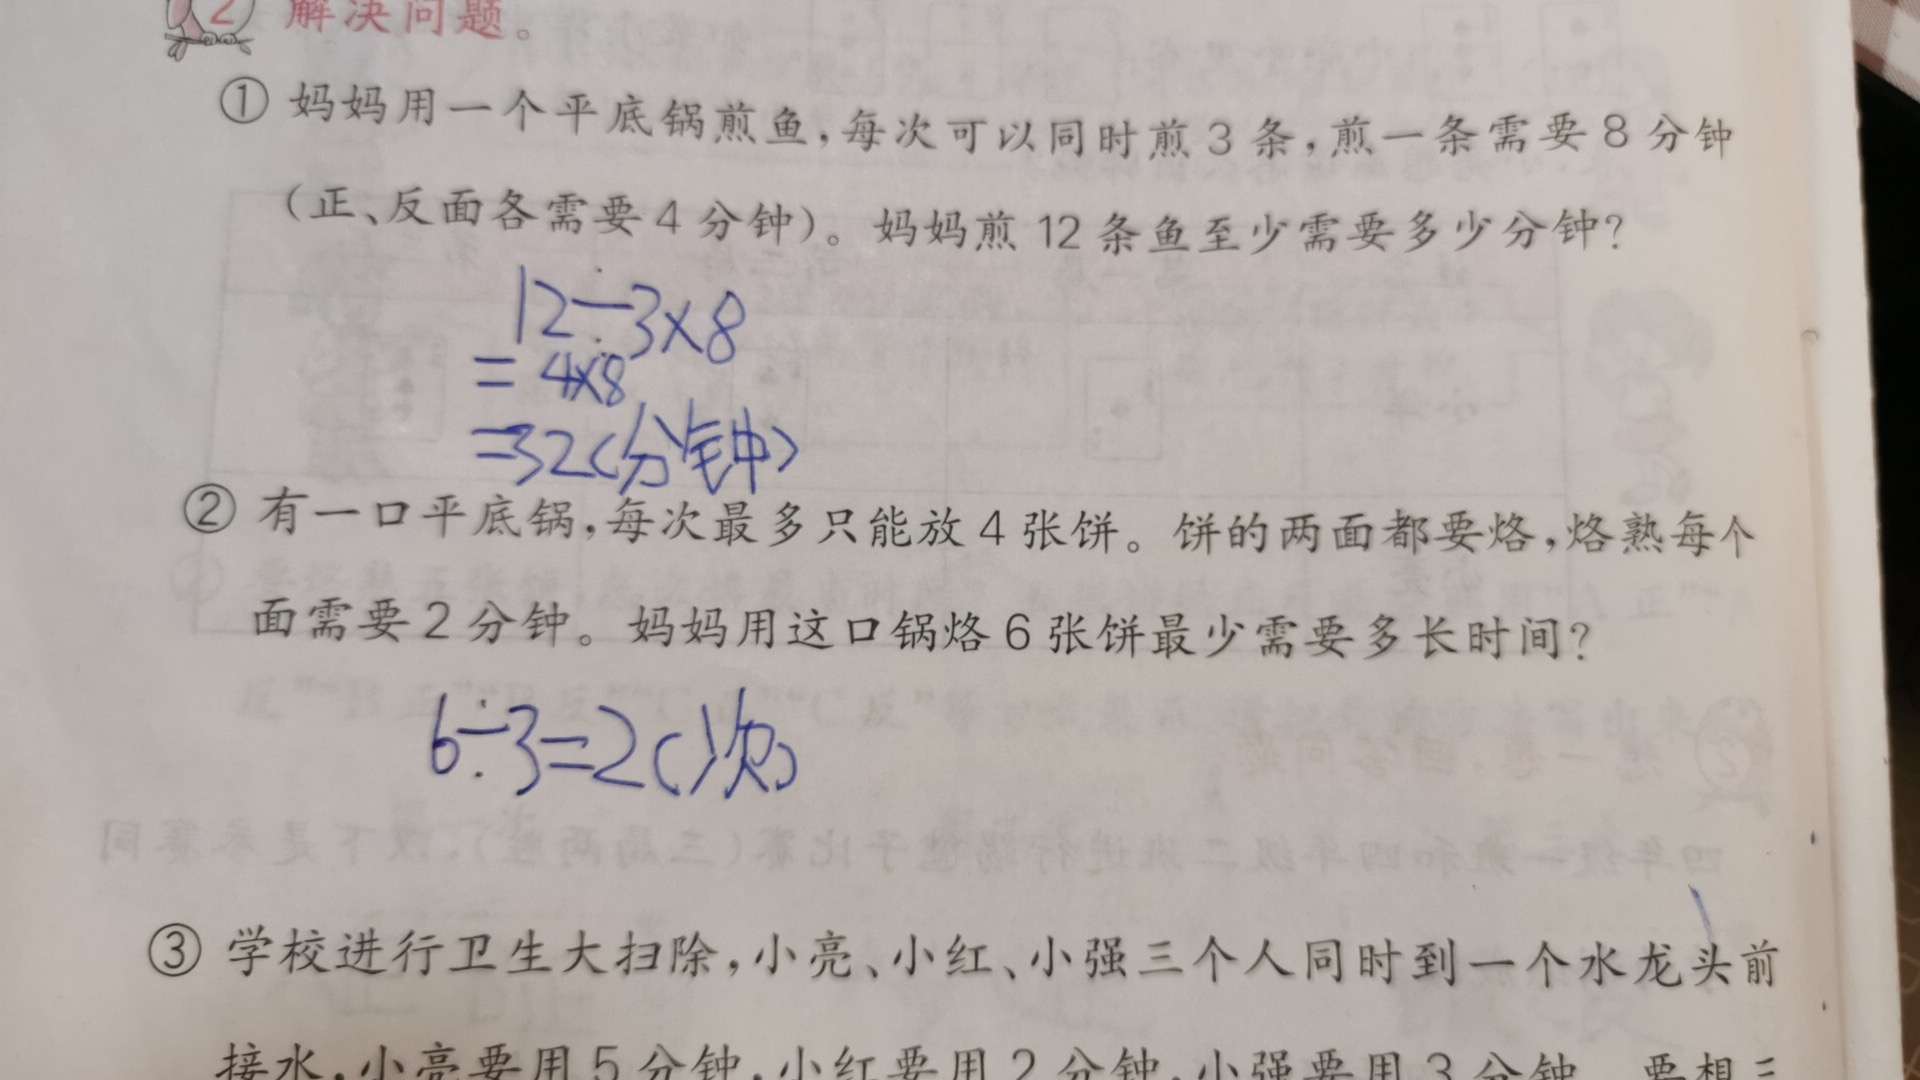 2 解决问题。
① 妈妈用一个平底锅煎鱼,每次可以同时煎3条,煎一条需要8分钟
(正、反面各需要4分钟)。妈妈煎12条鱼至少需要多少分钟?
12÷3×8
=4×8
=32(分钟)
② 有一口平底锅,每次最多只能放4张饼。饼的两面都要烙,烙熟每个
面需要2分钟。妈妈用这口锅烙6张饼最少需要多长时间?
6÷3=2(次)
③ 学校进行卫生大扫除,小亮、小红、小强三个人同时到一个水龙头前
接水,小亮要用5分钟,小红要用2分钟,小强要用3分钟。要想三